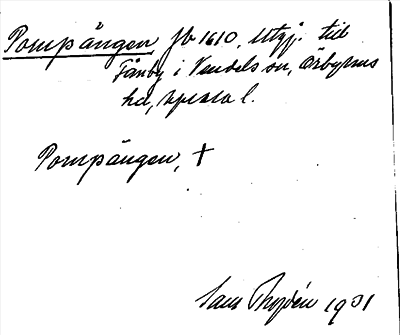 Pompängen jb 1610. Utgj. tid
Fånby i Vendels sn, Örbyhus
hd, Upsala l.
Pompängen, †
1931